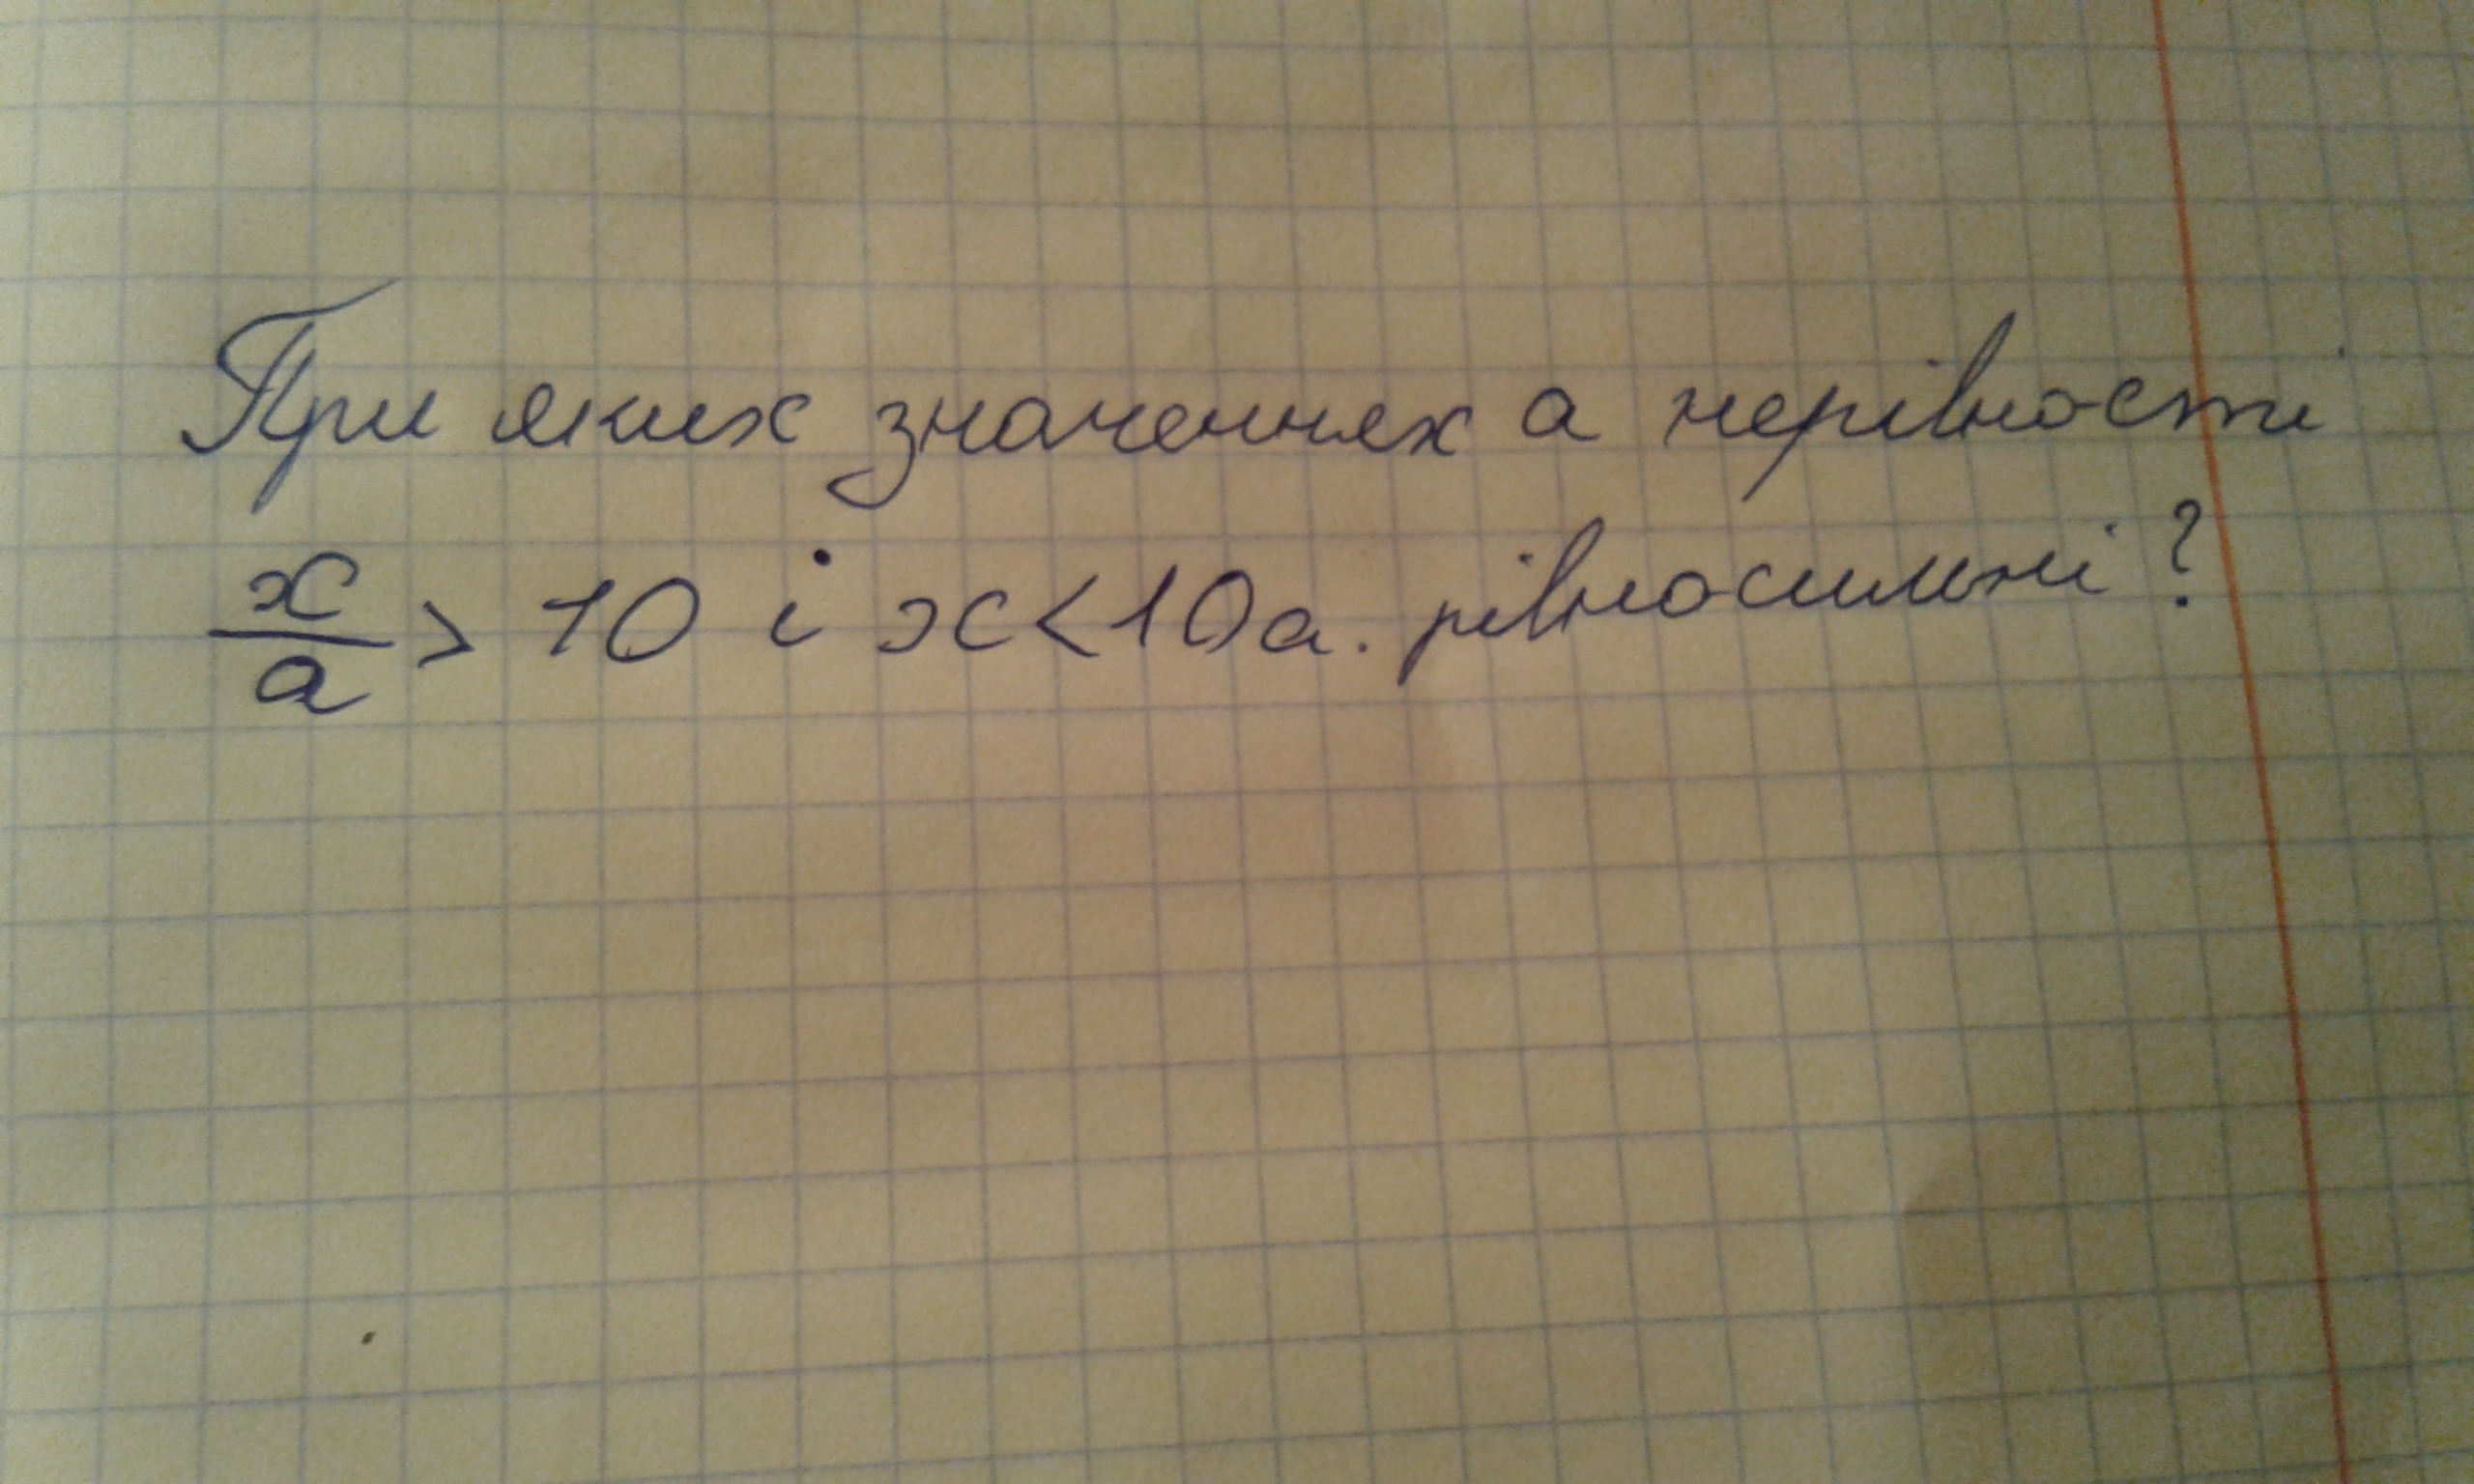 При яких значеннях а нерівності
x/a > 10 і x < 10а. рівносильні?